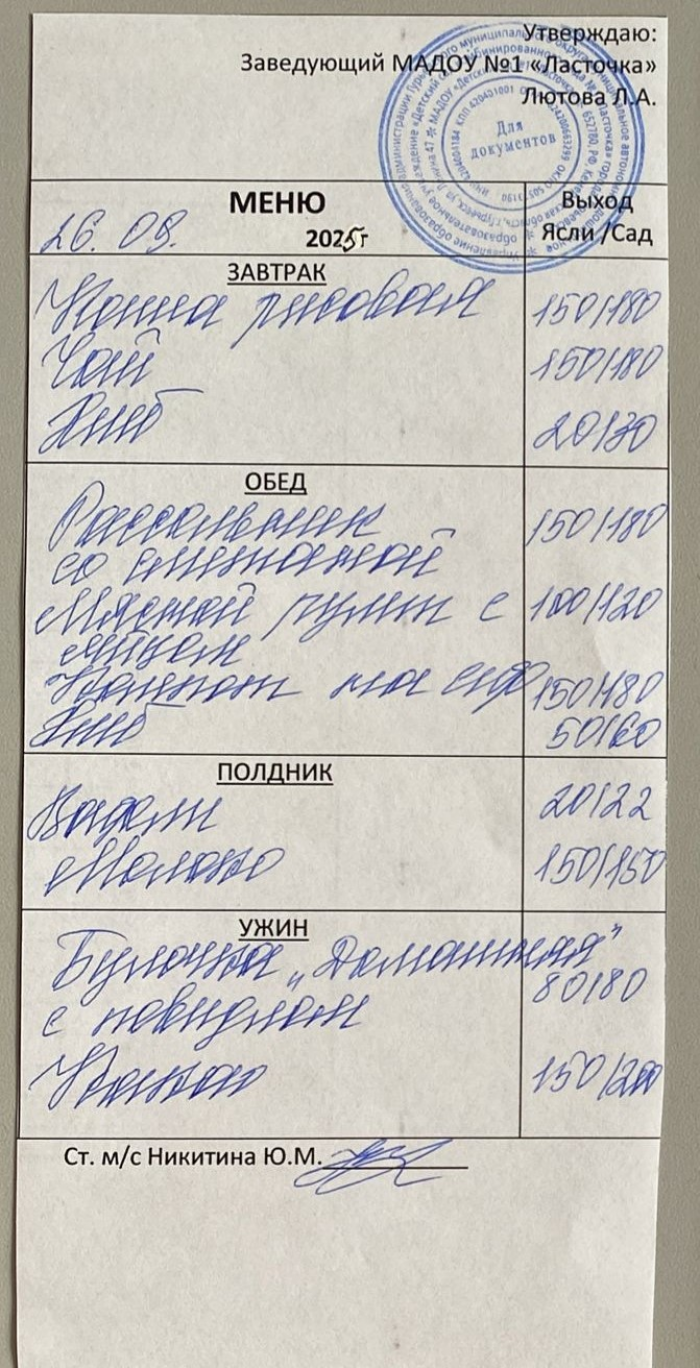 Утверждаю:
Заведующий МАДОУ №1 «Ласточка»
Лютова Л.А.
Для
документов
МЕНЮ
Выход
26. 09. 2025г
Ясли /Сад
ЗАВТРАК
Каша рисовая 150/180
Чай 150/180
Хлеб 20/30
ОБЕД
Рассольник 150/180
со сметаной
Мясной рулет с 100/120
яйцом
Компот из с/ф 150/180
Хлеб 50/60
ПОЛДНИК
Вафли 20/22
Молоко 150/150
УЖИН
Булочка „Домашняя"
80/80
с повидлом
Какао 150/200
Ст. м/с Никитина Ю.М.